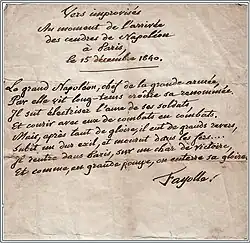 Vers improvisés
Au moment de l'arrivée
des cendres de Napoléon
à Paris,
le 15 décembre 1840.
Le grand Napoléon, chef de la grande armée,
Par elle vit long-tems croître sa renommée.
Il sut électriser l'ame de ses soldats,
Et courir avec eux de combats en combats,
Mais, après tant de gloire, il eut de grands revers,
Subit un dur exil, et mourut dans les fers...
Il rentre dans Paris, sur un char de victoire,
Et comme, en grande pompe, on enterre sa gloire.
Fayolle.